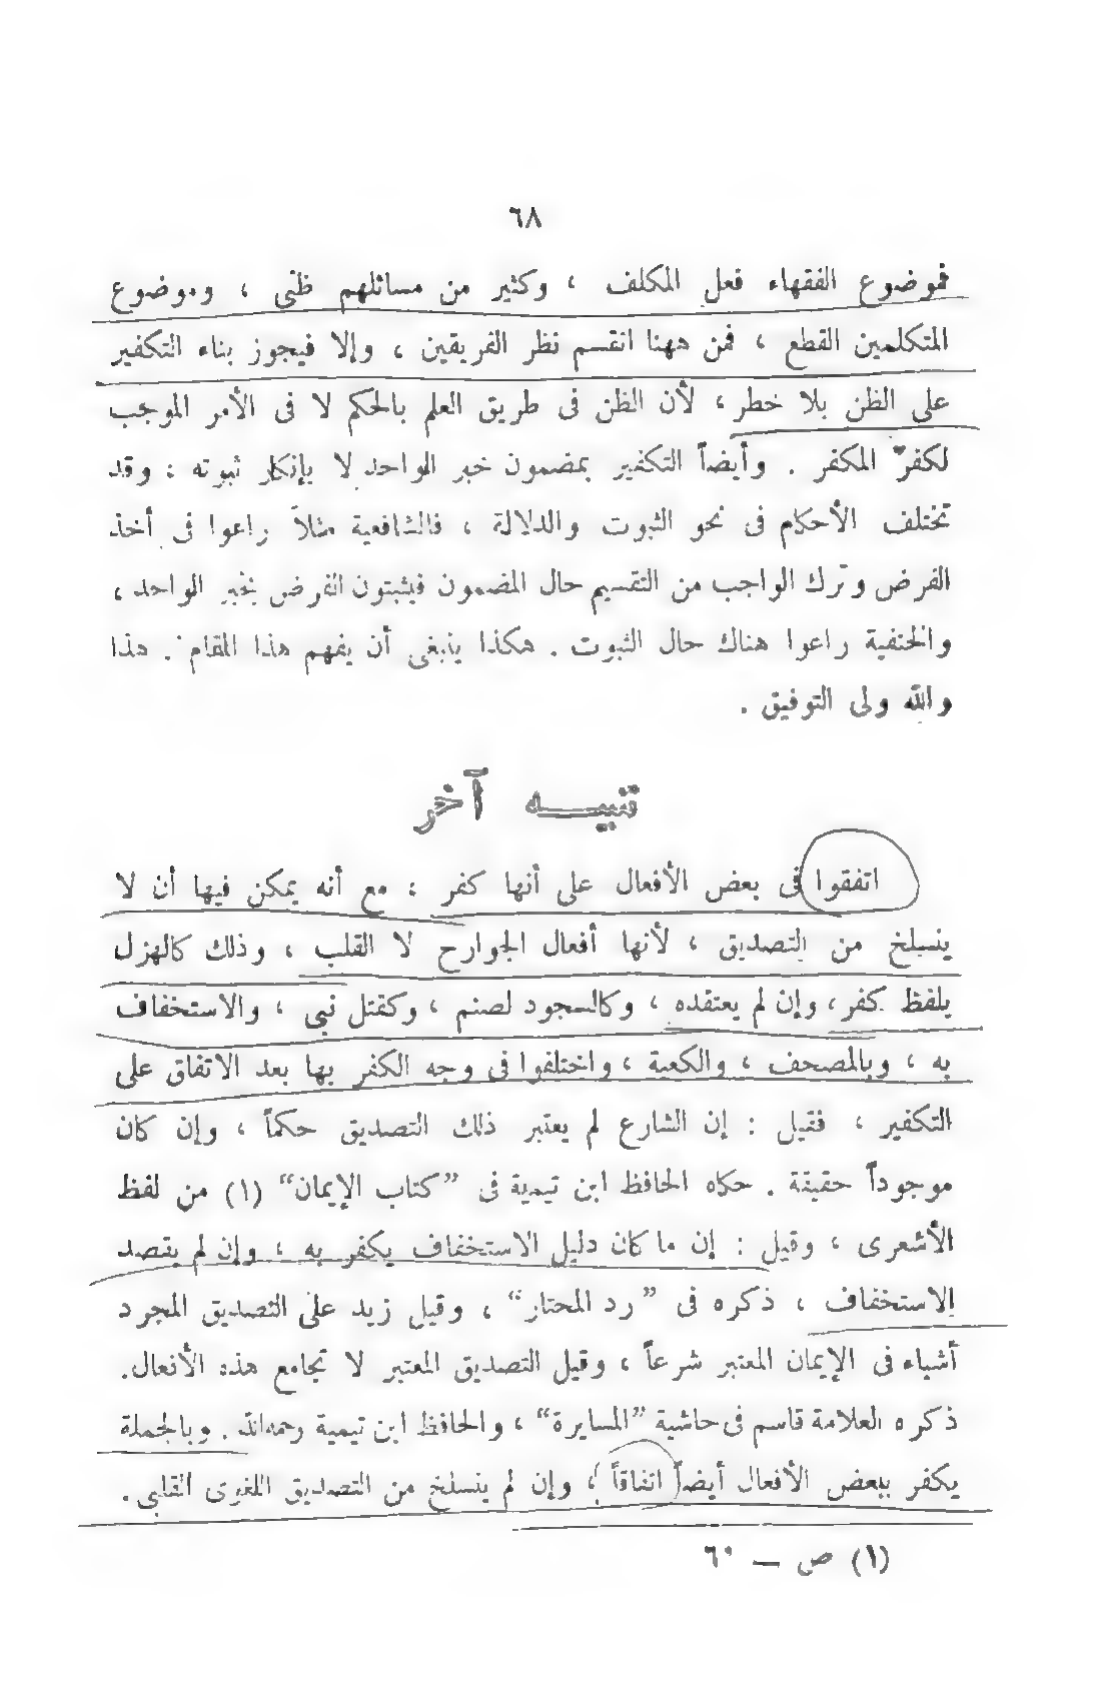 ٦٨
فموضوع الفقهاء فعل المكلف ، وكثير من مسائلهم ظنى ، وموضوع
المتكلمين القطع ، فمن ههنا انقسم نظر الفريقين ، وإلا فيجوز بناء التكفير
على الظن بلا خطر ، لأن الظن فى طريق العلم بالحكم لا فى الأمر الموجب
لكفر المكفر . وأيضاً التكفير بمضمون خبر الواحد لا بإنكار ثبوته ، وقد
تختلف الأحكام فى نحو الثبوت والدلالة ، فالشافعية مثلاً راعوا فى أخذ
الفرض وترك الواجب من التقسيم حال المضمون فيثبتون الفرض بخبر الواحد ،
والحنفية راعوا هناك حال الثبوت . هكذا ينبغى أن يفهم هذا المقام . هذا
والله ولى التوفيق .
تنبيـــه آخر
اتفقوا فى بعض الأفعال على أنها كفر ، مع أنه يمكن فيها أن لا
ينسلخ من التصديق ، لأنها أفعال الجوارح لا القلب ، وذلك كالهزل
بلفظ كفر ، وإن لم يعتقده ، وكالسجود لصنم ، وكقتل نبى ، والاستخفاف
به ، وبالمصحف ، والكعبة ، واختلفوا فى وجه الكفر بها بعد الاتفاق على
التكفير ، فقيل : إن الشارع لم يعتبر ذلك التصديق حكماً ، وإن كان
موجوداً حقيقة . حكاه الحافظ ابن تيمية فى "كتاب الإيمان" (١) من لفظ
الأشعرى ، وقيل : إن ما كان دليل الاستخفاف يكفر به ، وإن لم يقصد
الاستخفاف ، ذكره فى "رد المحتار" ، وقيل زيد على التصديق المجرد
أشياء فى الإيمان المعتبر شرعاً ، وقيل التصديق المعتبر لا تجامع هذه الأفعال.
ذكره العلامة قاسم فى حاشية "المسايرة" ، والحافظ ابن تيمية رحمه الله . وبالجملة
يكفر ببعض الأفعال أيضاً اتفاقاً ، وإن لم ينسلخ من التصديق اللغوى القلبى .
(١) ص — ٦٠